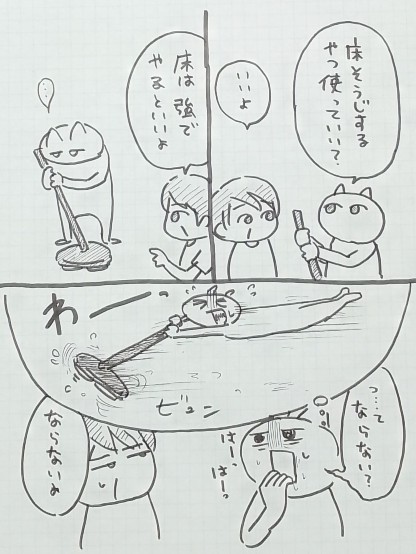 床そうじする
やつ使っていい?
いいよ
床は強で
やるといいよ
…
わーっ
ビュン
っ…て
ならない?
はーっ
はーっ
ならないよ